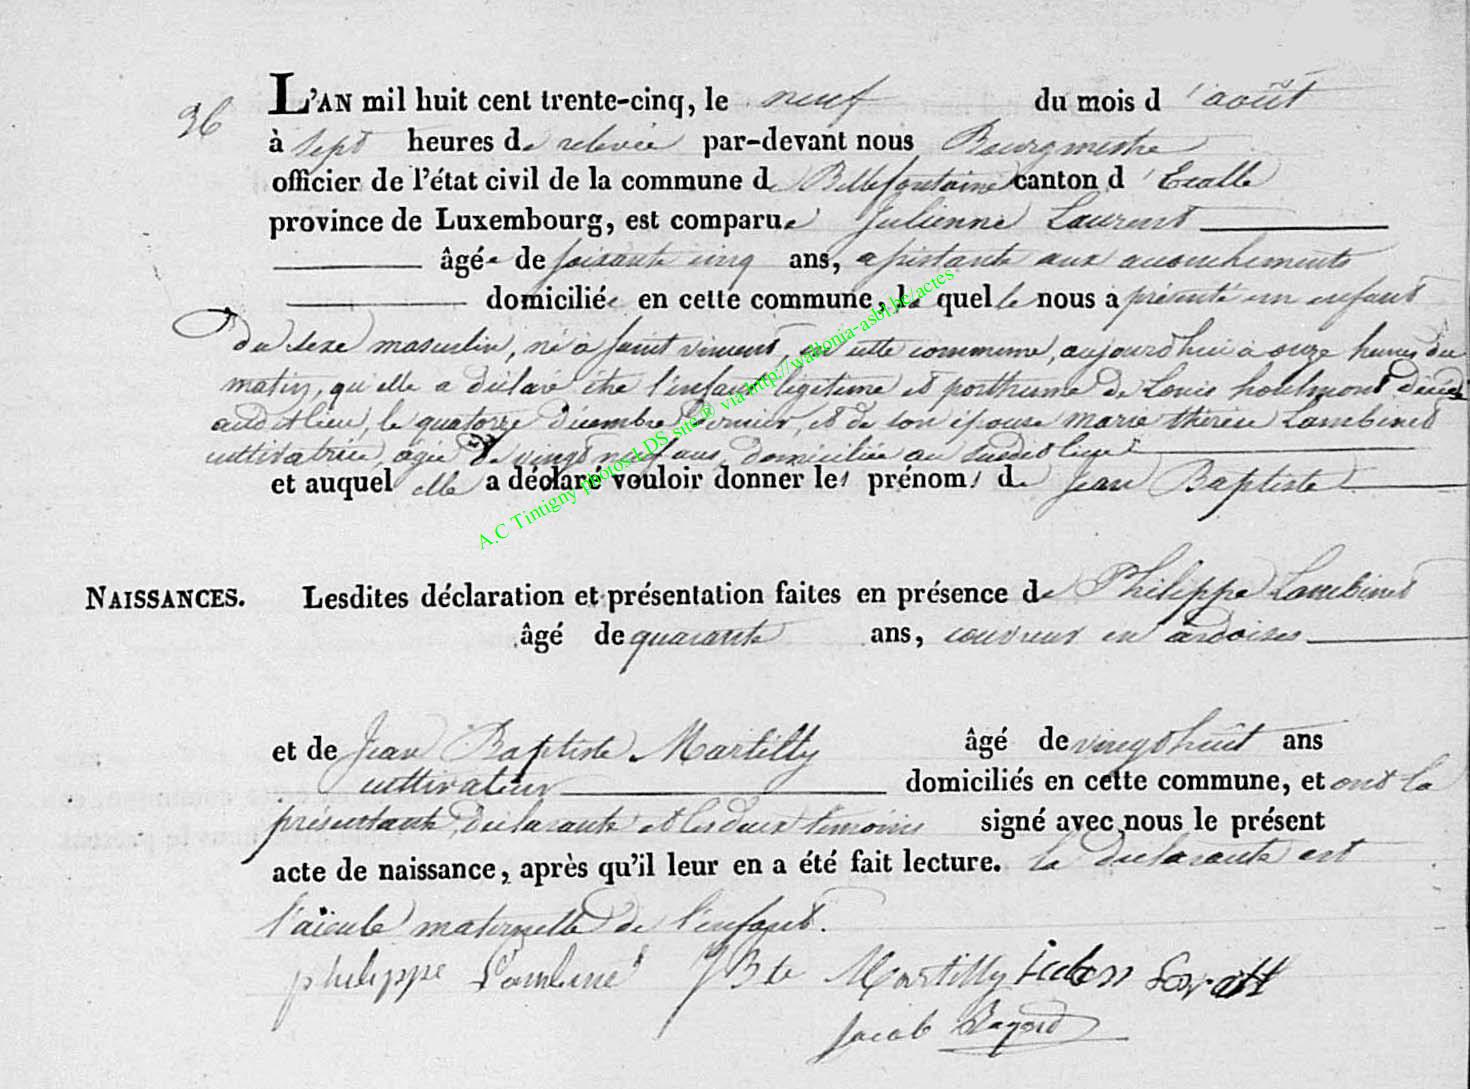 36
L'AN mil huit cent trente-cinq, le neuf du mois d'août
à sept heures de relevée par-devant nous Bourgmestre
officier de l'état civil de la commune de Bellefontaine canton d'Etalle
province de Luxembourg, est comparue Julienne Laurent
âgée de soixante cinq ans, assistante aux accouchements
domiciliée en cette commune, la quelle nous a présenté un enfant
du sexe masculin, né à saint vincent, en cette commune, aujourd'hui à onze heures du
matin, qu'elle a déclaré être l'enfant légitime et posthume de Louis houlmont décédé
audit lieu, le quatorze décembre dernier, et de son épouse marie thérèse Lambinet
cultivatrice, agée de vingt neuf ans, domiciliée au susdit lieu
et auquel elle a déclaré vouloir donner les prénoms de Jean Baptiste
A.C Tintigny photos LDS site® via http://wallonia-asbl.be/actes.
NAISSANCES. Lesdites déclaration et présentation faites en présence de Philippe Lambinet
âgé de quarante ans, couvreur en ardoises
et de Jean Baptiste Martilly âgé de vingt huit ans
cultivateur domiciliés en cette commune, et ont la
présentante déclarante et les deux témoins signé avec nous le présent
acte de naissance, après qu'il leur en a été fait lecture. la déclarante est
l'aïeule maternelle de l'enfant.
philippe Lambinet JBte Martilly
Jacob